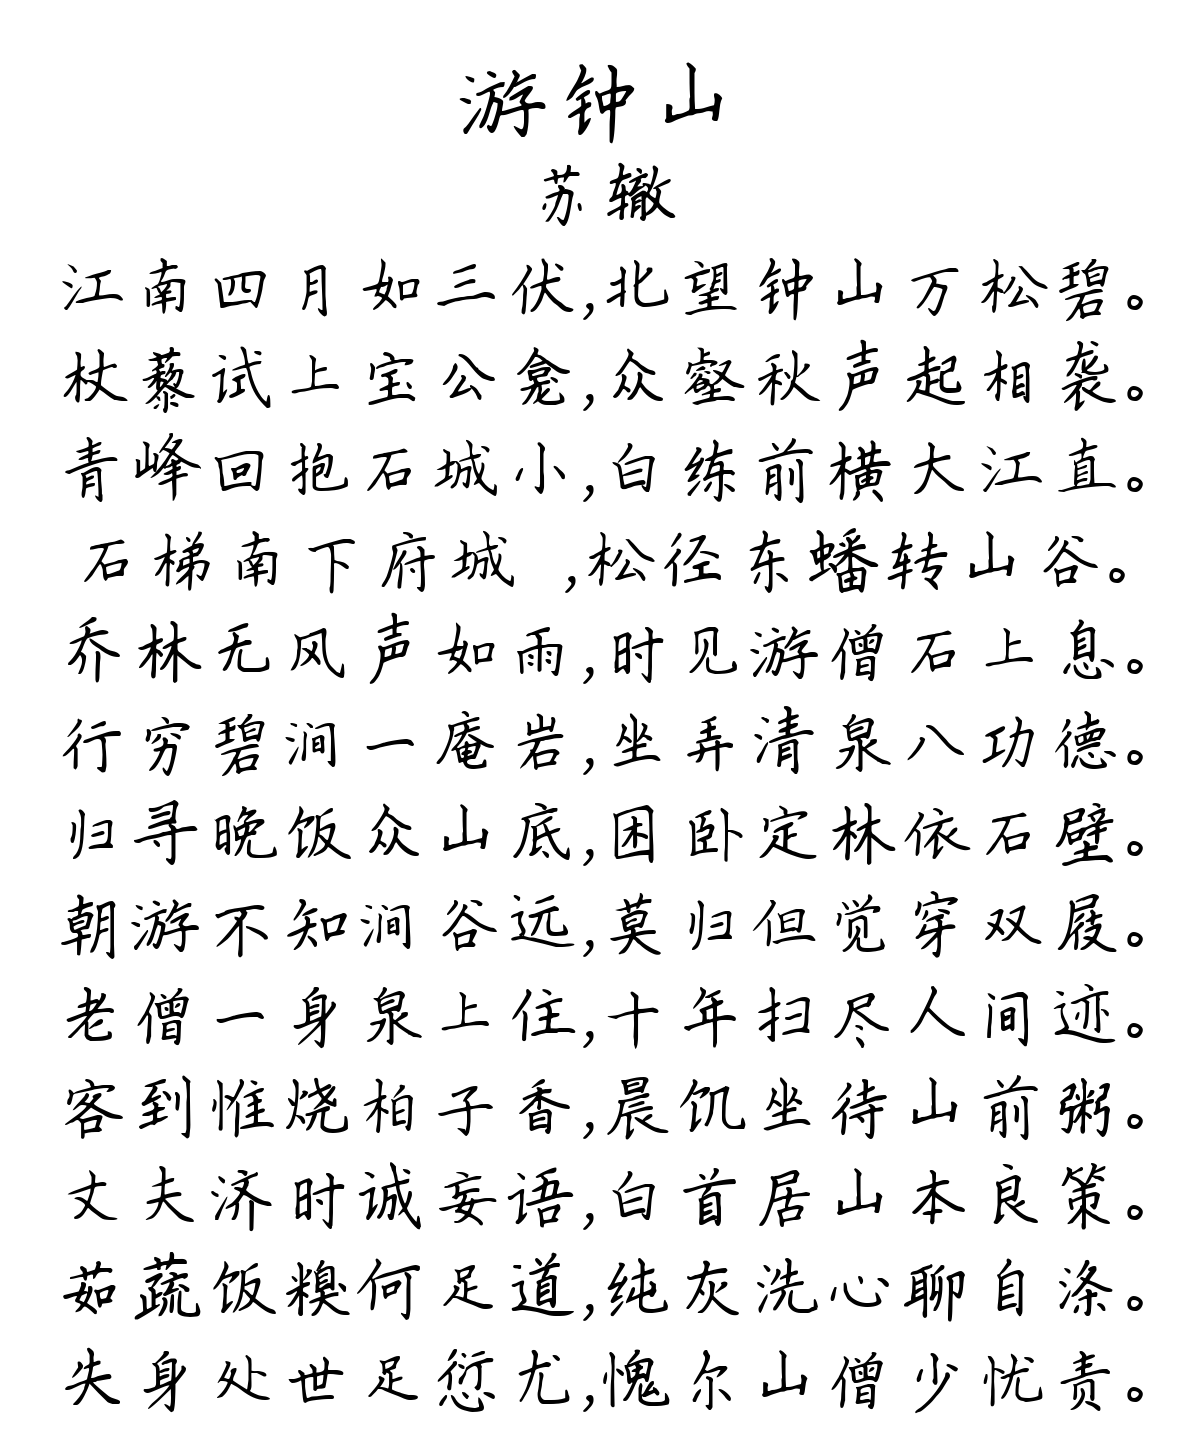 游钟山
苏辙
江南四月如三伏,北望钟山万松碧。
杖藜试上宝公龛,众壑秋声起相袭。
青峰回抱石城小,白练前横大江直。
石梯南下府城 ,松径东蟠转山谷。
乔林无风声如雨,时见游僧石上息。
行穷碧涧一庵岩,坐弄清泉八功德。
归寻晚饭众山底,困卧定林依石壁。
朝游不知涧谷远,莫归但觉穿双屐。
老僧一身泉上住,十年扫尽人间迹。
客到惟烧柏子香,晨饥坐待山前粥。
丈夫济时诚妄语,白首居山本良策。
茹蔬饭糗何足道,纯灰洗心聊自涤。
失身处世足愆尤,愧尔山僧少忧责。